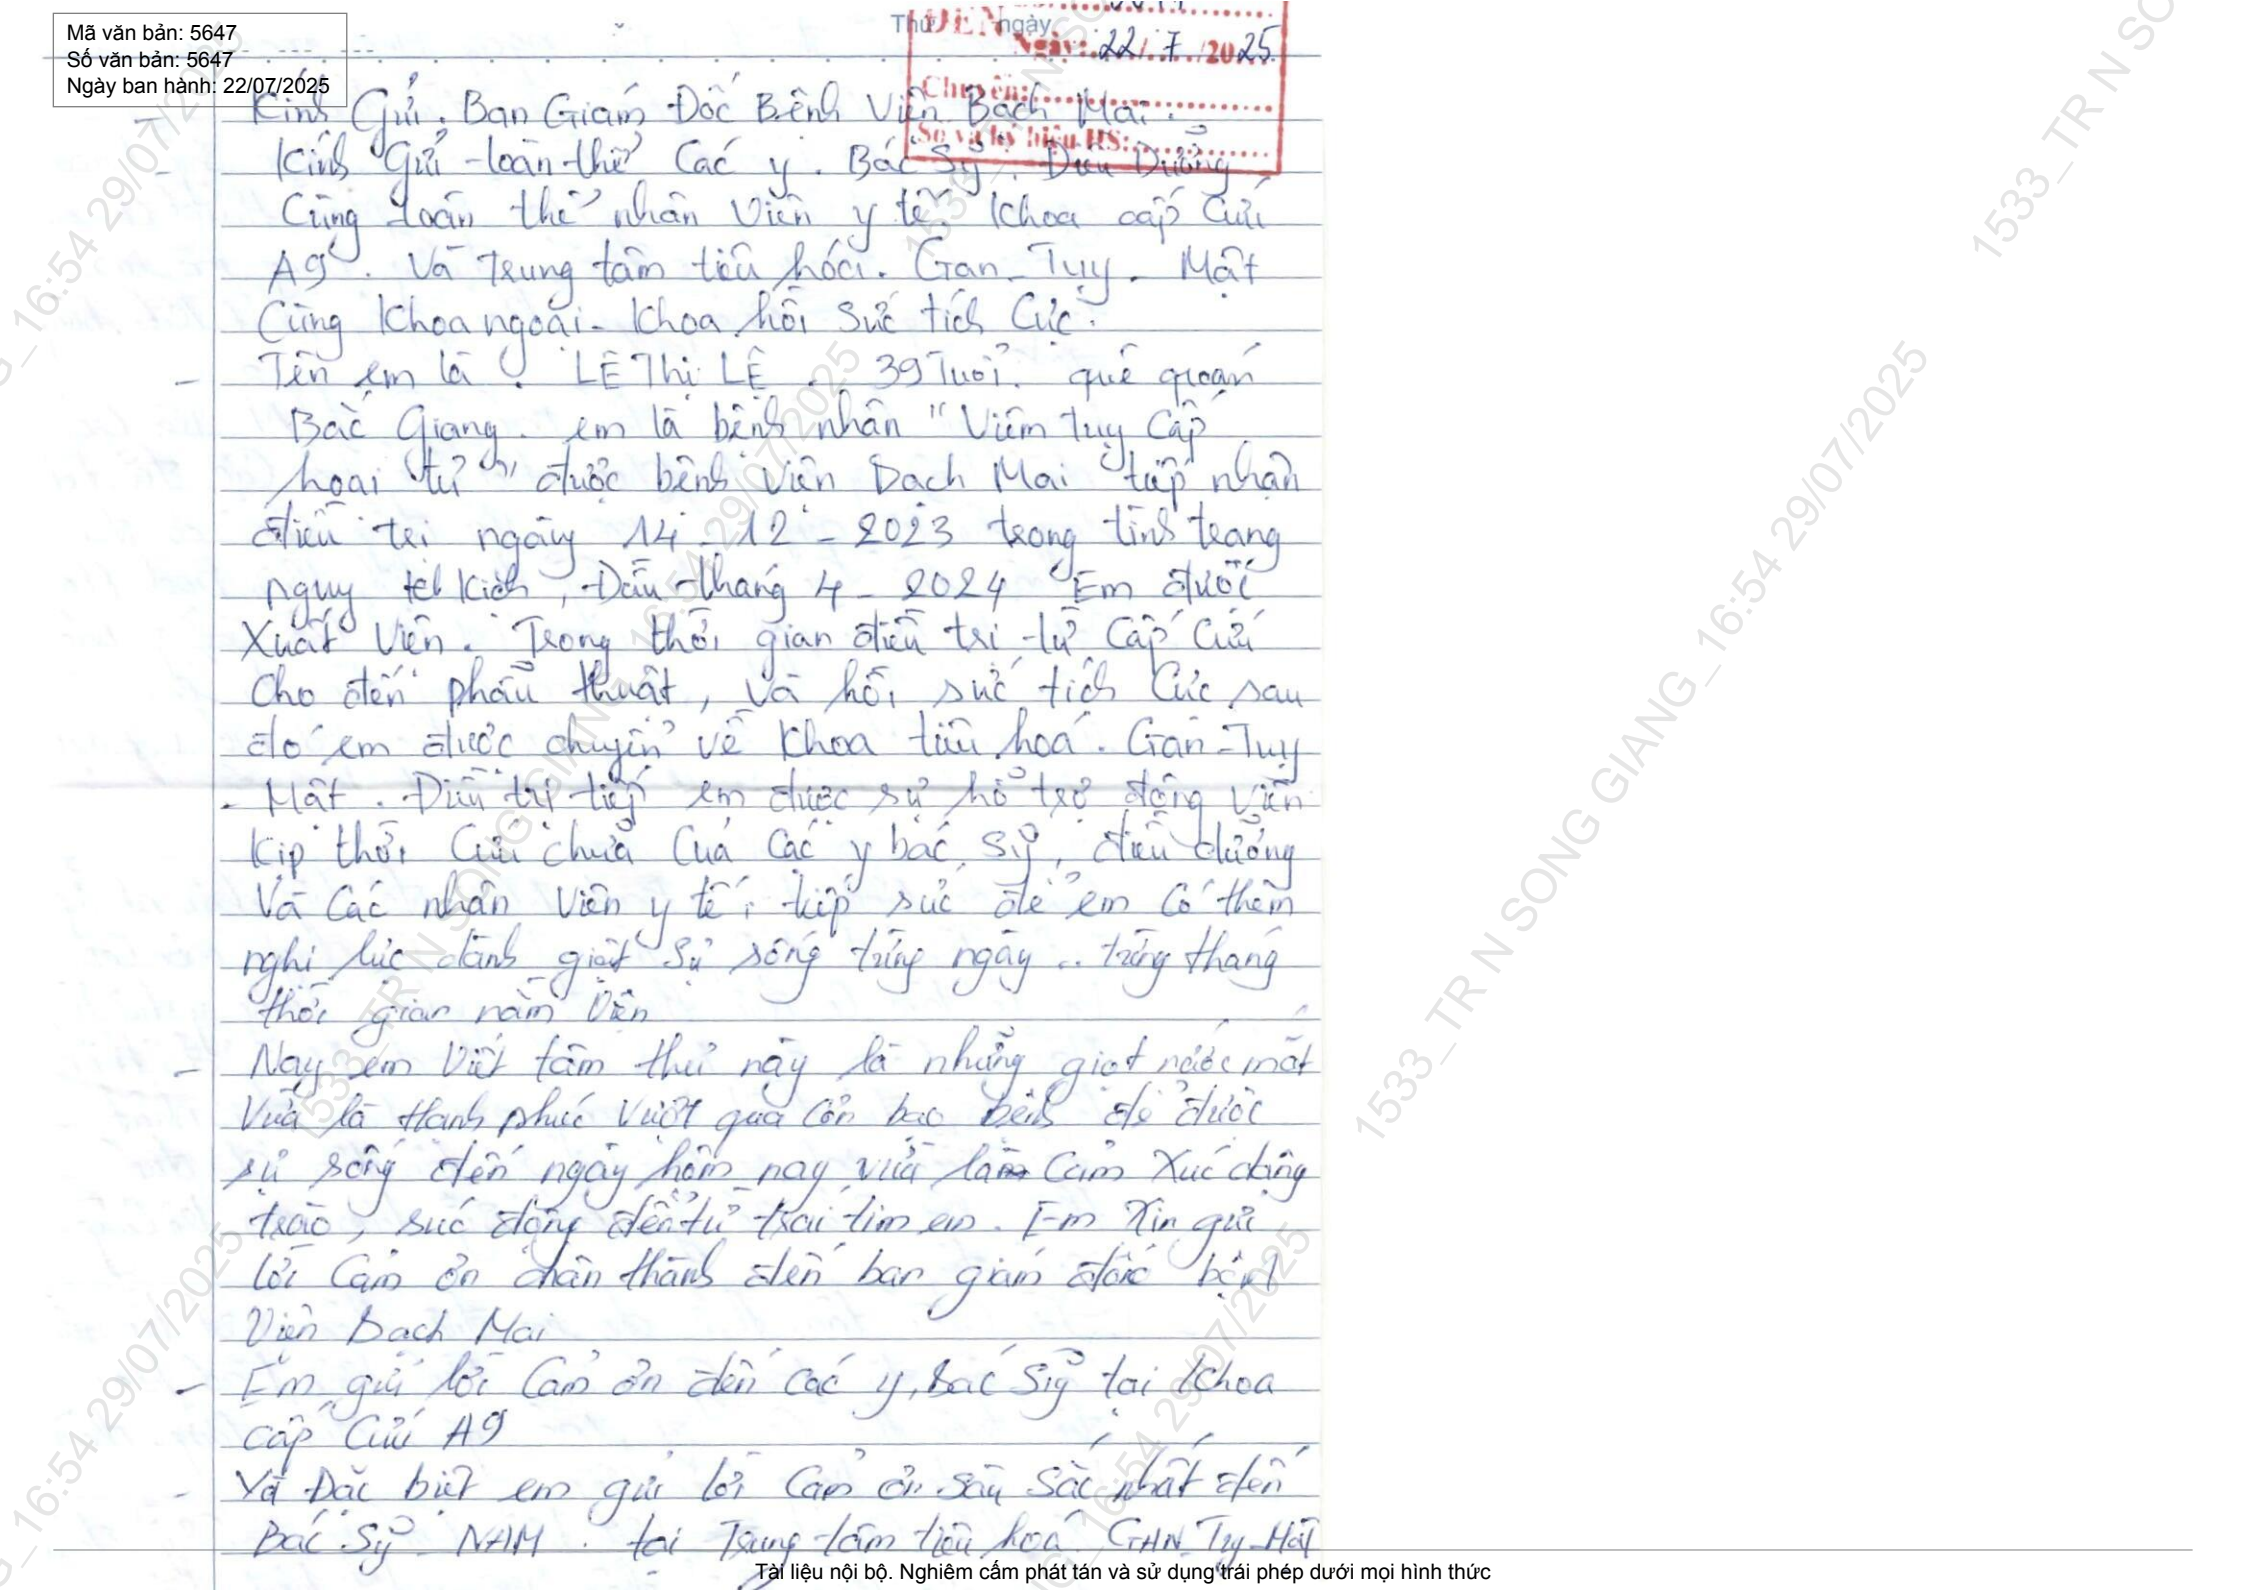 Mã văn bản: 5647
Số văn bản: 5647
Ngày ban hành: 22/07/2025
Thứ ngày
ĐẾN
Ngày: 22/ 7 /2025
Chuyển:
Số và ký hiệu HS:
- Kính Gửi. Ban Giám Đốc Bệnh Viện Bạch Mai.
- Kính Gửi toàn thể Các y. Bác Sỹ. Điều Dưỡng
Cùng toàn thể nhân Viên y tế Khoa cấp Cứu
A9. Và Trung tâm tiêu hóa. Gan - Tụy - Mật
Cùng Khoa ngoại - Khoa hồi Sức tích Cực.
- Tên em là. LÊ Thị LỆ. 39 Tuổi. quê quán
Bắc Giang. em là bệnh nhân "Viêm tuỵ Cấp
hoại tử" được bệnh Viện Bạch Mai tiếp nhận
điều trị ngày 14 - 12 - 2023 trong tình trạng
nguy kịch, Đầu tháng 4 - 2024 Em được
Xuất Viện. Trong thời gian điều trị từ Cấp Cứu
Cho đến phẫu thuật, và hồi sức tích Cực sau
đó em được chuyển về Khoa tiêu hoá. Gan - Tuỵ
- Mật. Điều trị tiếp em được sự hỗ trợ động viên
Kịp thời Cứu chữa Của Các y bác sỹ, điều dưỡng
Và Các nhân Viên y tế, tiếp sức để em Có thêm
nghị lực dành giật Sự sống từng ngày .. từng tháng
thời gian nằm Viện
- Nay em Viết tâm thư này là những giọt nước mắt
Vừa là Hạnh phúc Vượt qua Cơn bạo bệnh để được
sự sống đến ngày hôm nay, vừa là Cảm Xúc dâng
trào, xúc động đến từ trái tim em. Em Xin gửi
lời Cảm ơn chân thành đến ban giám đốc bệnh
Viện Bạch Mai
- Em gửi lời Cảm ơn đến các y, Bác Sỹ tại Khoa
cấp Cứu A9
- Và Đặc biệt em gửi lời Cảm ơn Sâu Sắc nhất đến
Bác Sỹ NAM. tại Trung tâm tiêu hoá GAN - Tụy - Mật
Tài liệu nội bộ. Nghiêm cấm phát tán và sử dụng trái phép dưới mọi hình thức
1533_TR N SONG GIANG_16:54 29/07/2025